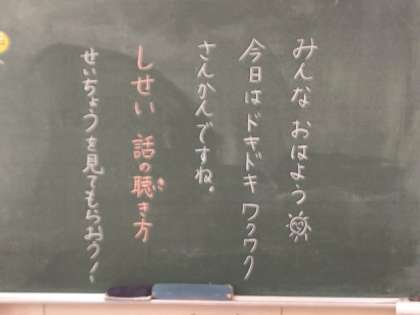 みんな おはよう
今日は ドキドキ ワクワク
さんかんですね。
しせい 話の聴き方
せいちょうを見てもらおう！